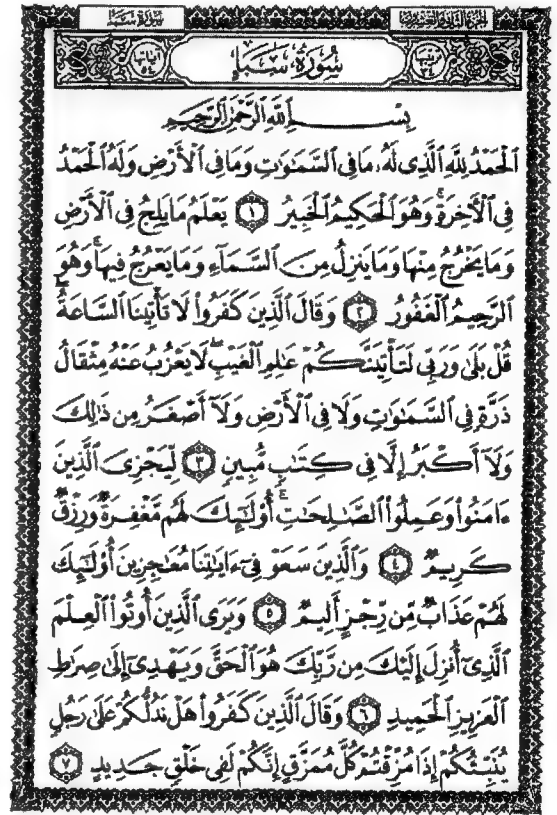 سورة سبإ
الجزء الثاني والعشرون
ترتيبها ٣٤
سُورَةُ سَبَإٍ
آياتها ٥٤
بِسْمِ ٱللَّهِ ٱلرَّحْمَٰنِ ٱلرَّحِيمِ
ٱلْحَمْدُ لِلَّهِ ٱلَّذِى لَهُۥ مَا فِى ٱلسَّمَٰوَٰتِ وَمَا فِى ٱلْأَرْضِ وَلَهُ ٱلْحَمْدُ
فِى ٱلْأَخِرَةِ ۚ وَهُوَ ٱلْحَكِيمُ ٱلْخَبِيرُ ١ يَعْلَمُ مَا يَلِجُ فِى ٱلْأَرْضِ
وَمَا يَخْرُجُ مِنْهَا وَمَا يَنزِلُ مِنَ ٱلسَّمَآءِ وَمَا يَعْرُجُ فِيهَا ۚ وَهُوَ
ٱلرَّحِيمُ ٱلْغَفُورُ ٢ وَقَالَ ٱلَّذِينَ كَفَرُوا۟ لَا تَأْتِينَا ٱلسَّاعَةُ ۖ
قُلْ بَلَىٰ وَرَبِّى لَتَأْتِيَنَّكُمْ عَٰلِمِ ٱلْغَيْبِ ۖ لَا يَعْزُبُ عَنْهُ مِثْقَالُ
ذَرَّةٍ فِى ٱلسَّمَٰوَٰتِ وَلَا فِى ٱلْأَرْضِ وَلَآ أَصْغَرُ مِن ذَٰلِكَ
وَلَآ أَكْبَرُ إِلَّا فِى كِتَٰبٍ مُّبِينٍ ٣ لِّيَجْزِىَ ٱلَّذِينَ
ءَامَنُوا۟ وَعَمِلُوا۟ ٱلصَّٰلِحَٰتِ ۚ أُو۟لَٰٓئِكَ لَهُم مَّغْفِرَةٌ وَرِزْقٌ
كَرِيمٌ ٤ وَٱلَّذِينَ سَعَوْ فِىٓ ءَايَٰتِنَا مُعَٰجِزِينَ أُو۟لَٰٓئِكَ
لَهُمْ عَذَابٌ مِّن رِّجْزٍ أَلِيمٌ ٥ وَيَرَى ٱلَّذِينَ أُوتُوا۟ ٱلْعِلْمَ
ٱلَّذِىٓ أُنزِلَ إِلَيْكَ مِن رَّبِّكَ هُوَ ٱلْحَقَّ وَيَهْدِىٓ إِلَىٰ صِرَٰطِ
ٱلْعَزِيزِ ٱلْحَمِيدِ ٦ وَقَالَ ٱلَّذِينَ كَفَرُوا۟ هَلْ نَدُلُّكُمْ عَلَىٰ رَجُلٍ
يُنَبِّئُكُمْ إِذَا مُزِّقْتُمْ كُلَّ مُمَزَّقٍ إِنَّكُمْ لَفِى خَلْقٍ جَدِيدٍ ٧